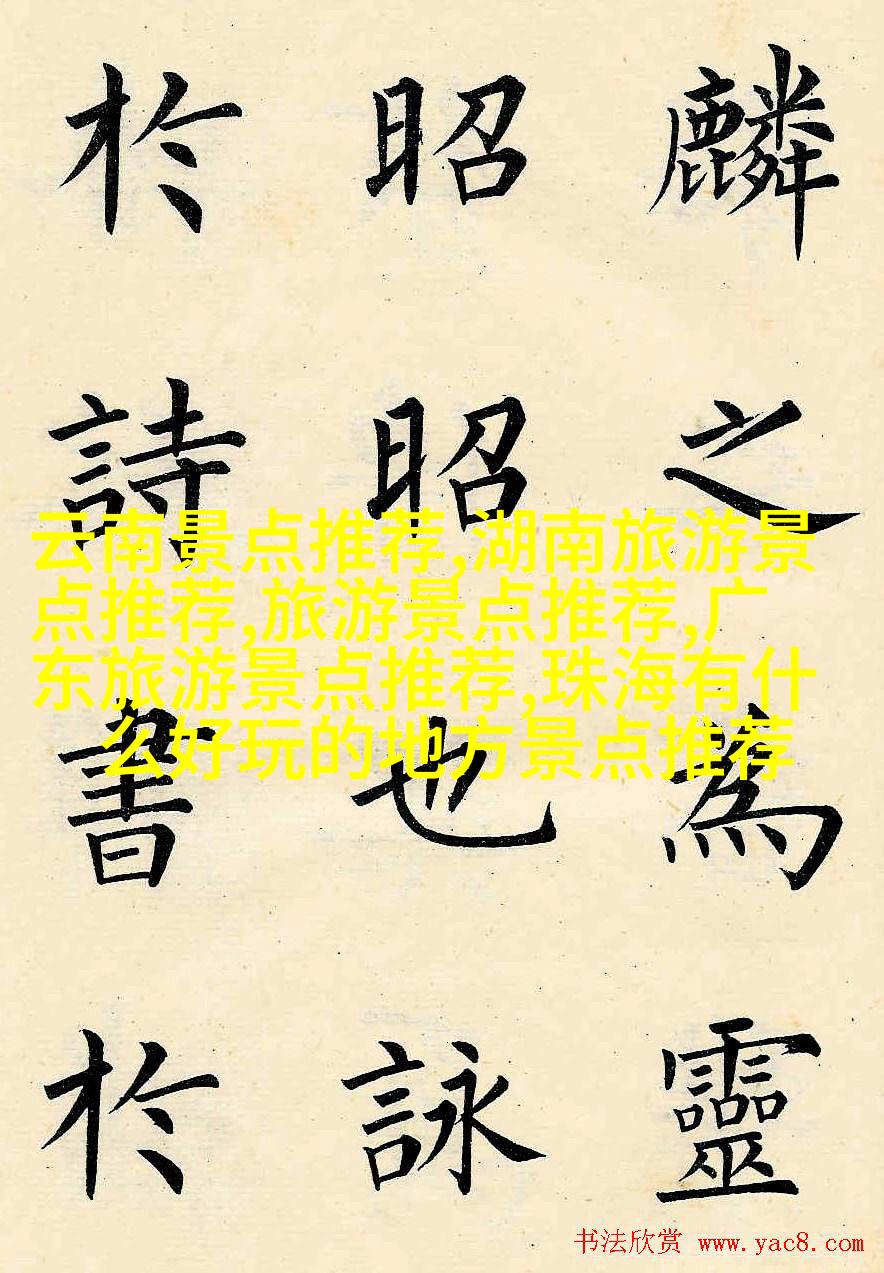 麟之為靈
昭昭也詠
於詩書於
云南景点推荐,湖南旅游景
点推荐,旅游景点推荐,广
东旅游景点推荐,珠海有什
么好玩的地方景点推荐
书法欣赏 www.yac8.com